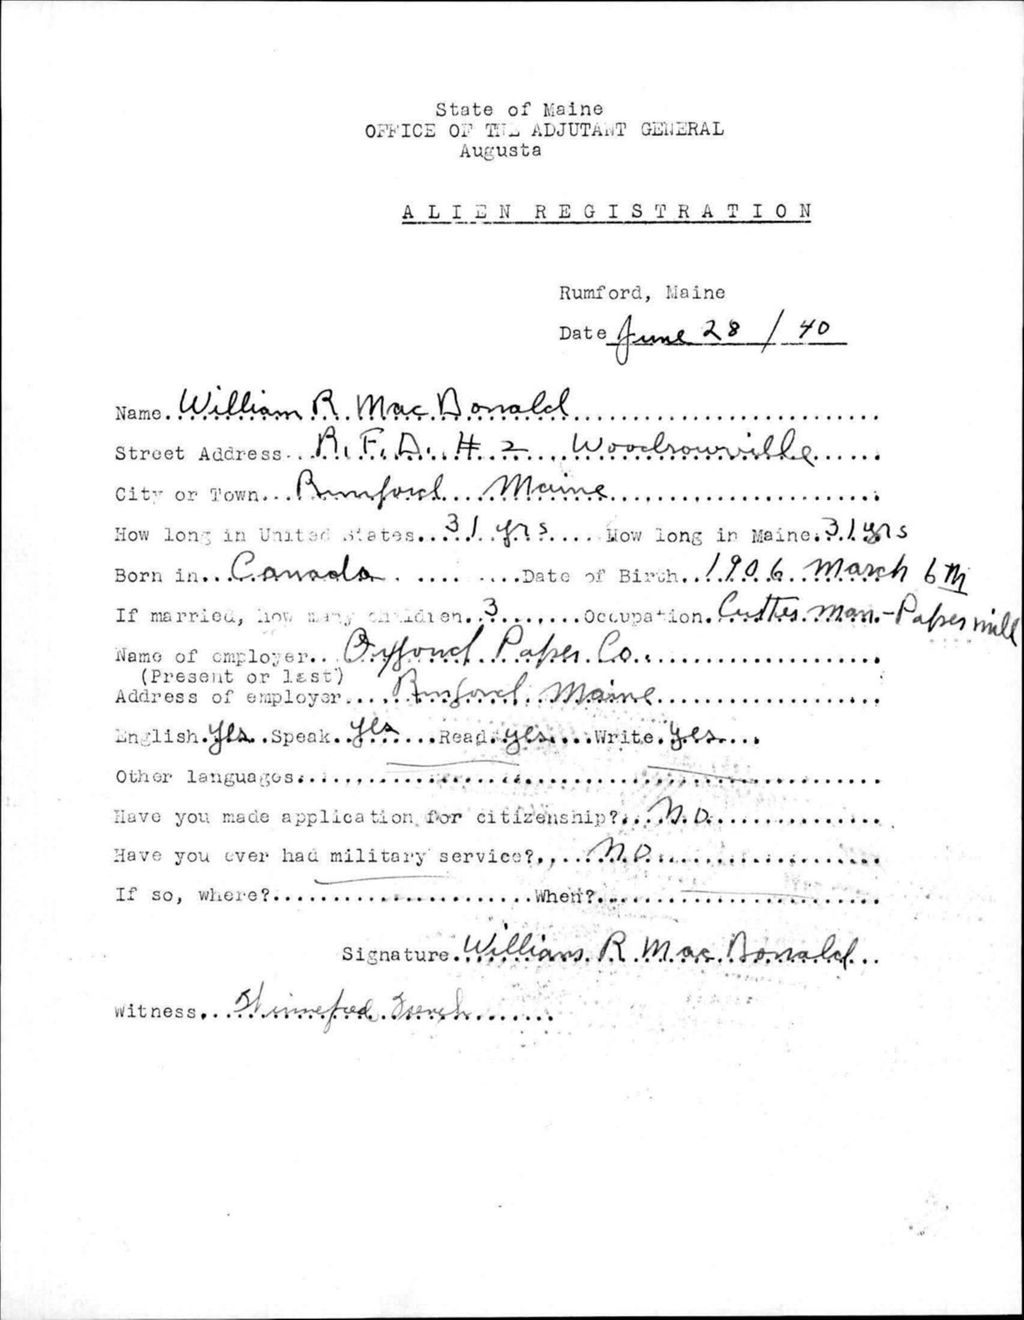 State of Maine
OFFICE OF THE ADJUTANT GENERAL
Augusta
ALIEN REGISTRATION
Rumford, Maine
Date June 28 / 40
Name. William R. Mac Donald
Street Address. R.F.D. # 2 Woodrowville
City or Town. Rumford Maine
How long in United States. 31 yrs. How long in Maine. 31 yrs
Born in. Canada Date of Birth. 1906 March 6th
If married, how many children. 3 Occupation. Cutter man - Paper mill
Name of employer. Oxford Paper Co.
(Present or last)
Address of employer. Rumford, Maine
English. Yes. Speak. Yes Read. Yes Write. Yes
Other languages.
Have you made application for citizenship? No.
Have you ever had military service? No.
If so, where? When?
Signature. William R. Mac Donald
Witness. French